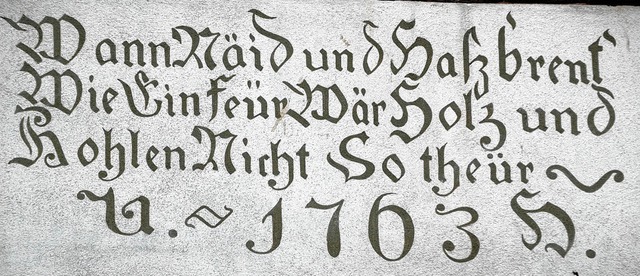 Wann Näid und Haß brent
Wie Ein feür Wär Holz und
Kohlen Nicht So theür ~
U. ~ 1763 H.